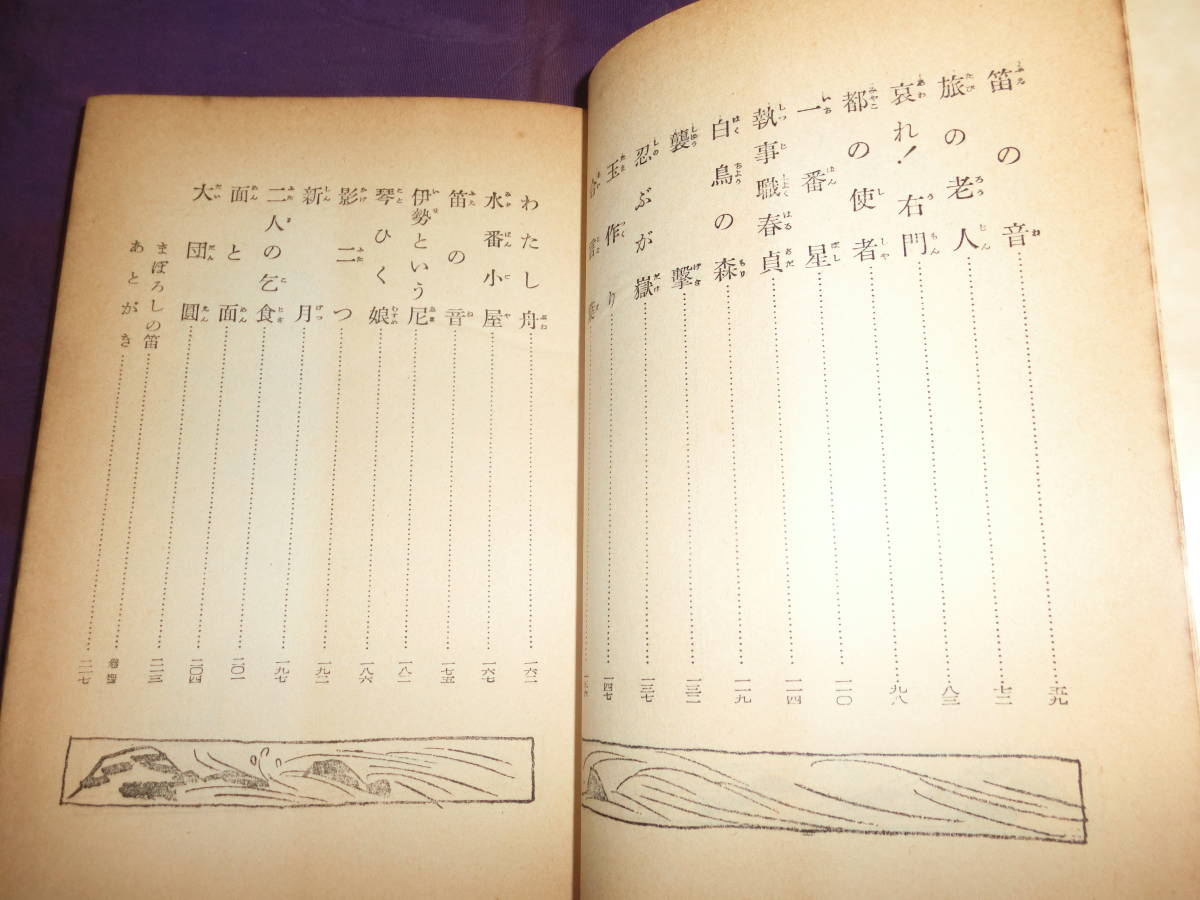 笛の音 五九
旅の老人 七二
哀れ！右門 八三
都の使者 九八
一番星 一一〇
執事職春貞 一一四
白鳥の森 一一九
襲撃 一三二
忍ぶが嶽 一三七
玉作り 一四七
わたし舟 一六二
水番小屋 一六七
笛の音 一七五
伊勢という尼 一八二
琴ひく娘 一八六
影二つ 一九二
新月 一九七
二人の乞食 二〇一
面と面 二〇四
大団圓 二一三
まぼろしの笛
あとがき 二一七